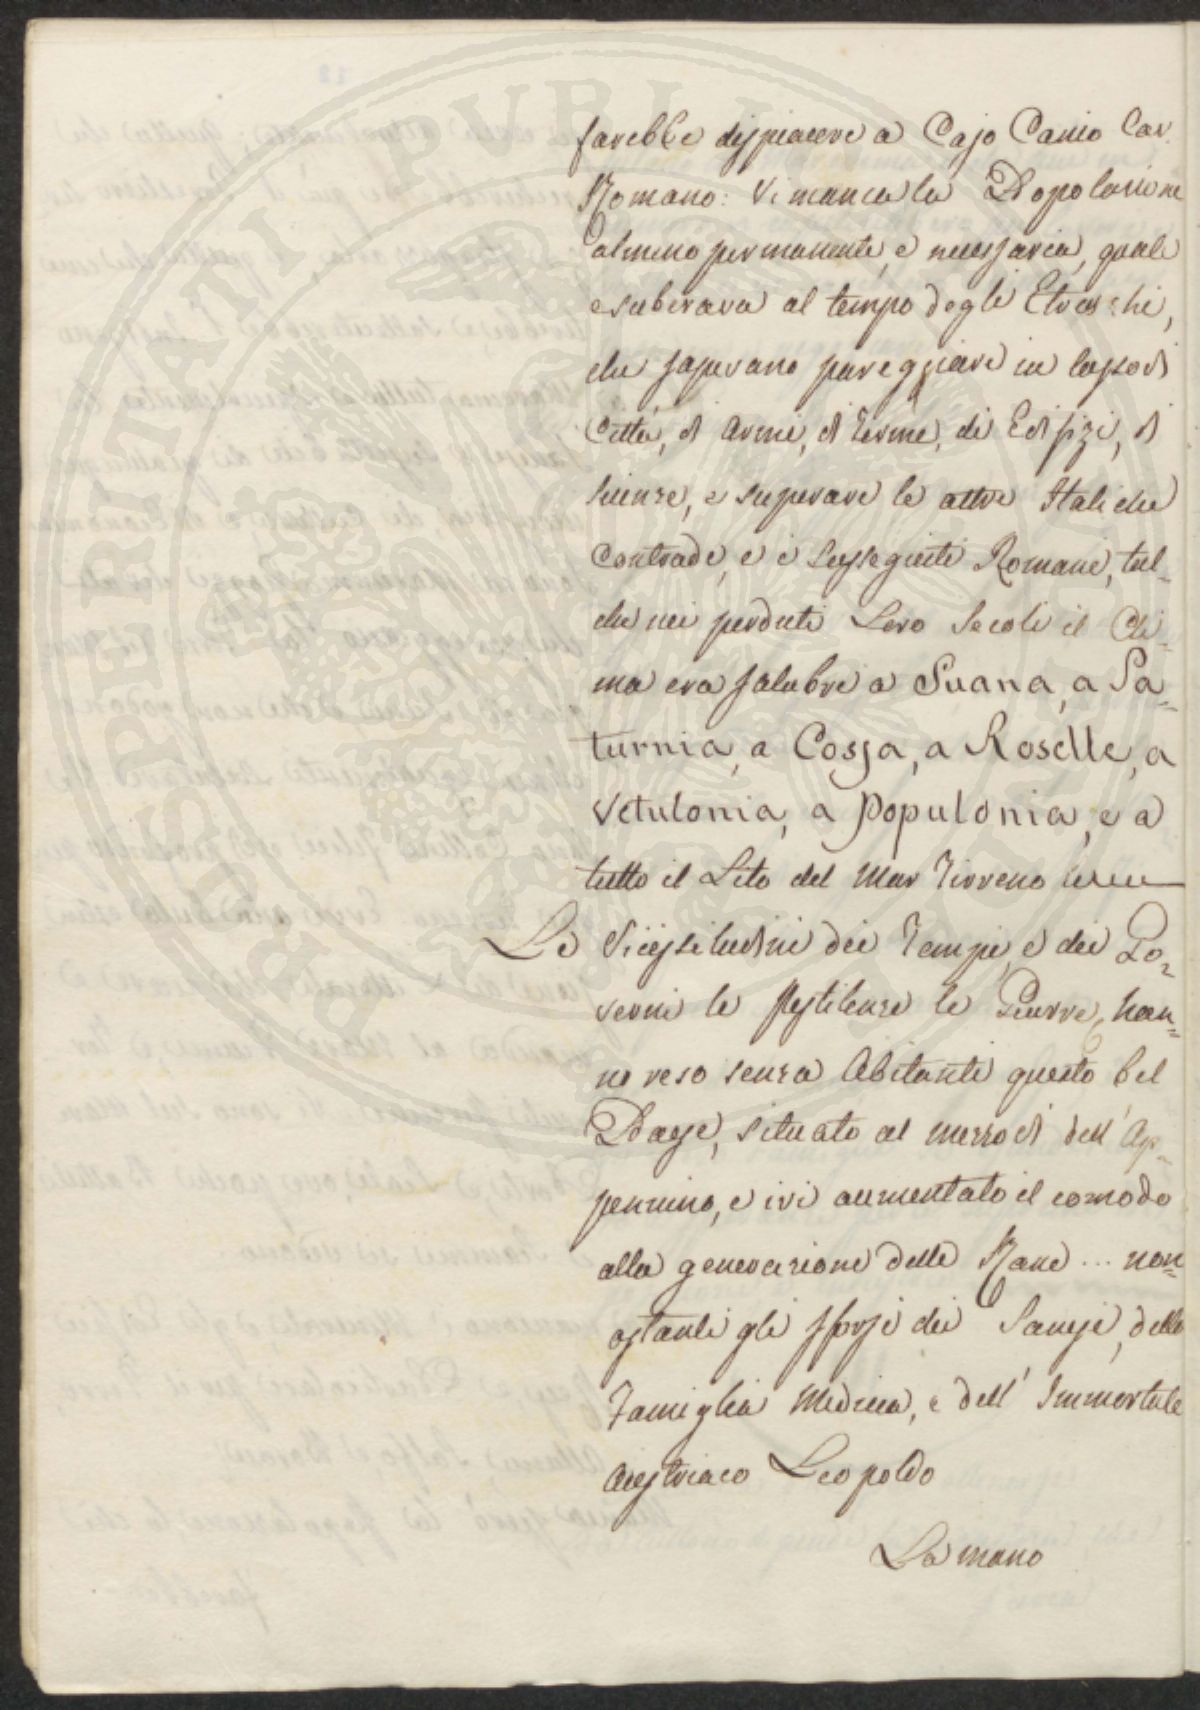 farebbe dispiacere a Cajo Canio Cav.
Romano: vi manca la Popolazione
almeno permanente, e necessaria, quale
esuberava al tempo degli Etruschi,
che sapevano pareggiare in lusso di
Città, di armi, di terme, di Edifizi, di
scienze, e superare le altre Italiche
Contrade, e i susseguiti Romani, tal-
che nei perduti Loro Secoli il Cli-
ma era salubre a Suana, a Sa=
turnia, a Cossa, a Roselle, a
Vetulonia, a Populonia, e a
tutto il Lito del Mar Tirreno
Le Vicissitudini dei Tempi, e dei Go=
verni le Pestilenze le Guerre, han=
no reso senza Abitanti questo bel
Paese, situato al mezzodì dell' Ap-
pennino, e ivi aumentato il comodo
alla generazione delle Rane ... non=
ostanti gli sforzi dei Sanesi, della
Famiglia Medicea, e dell' Immortale
Austriaco Leopoldo
La mano
PROSPERITATI PUBLICAE